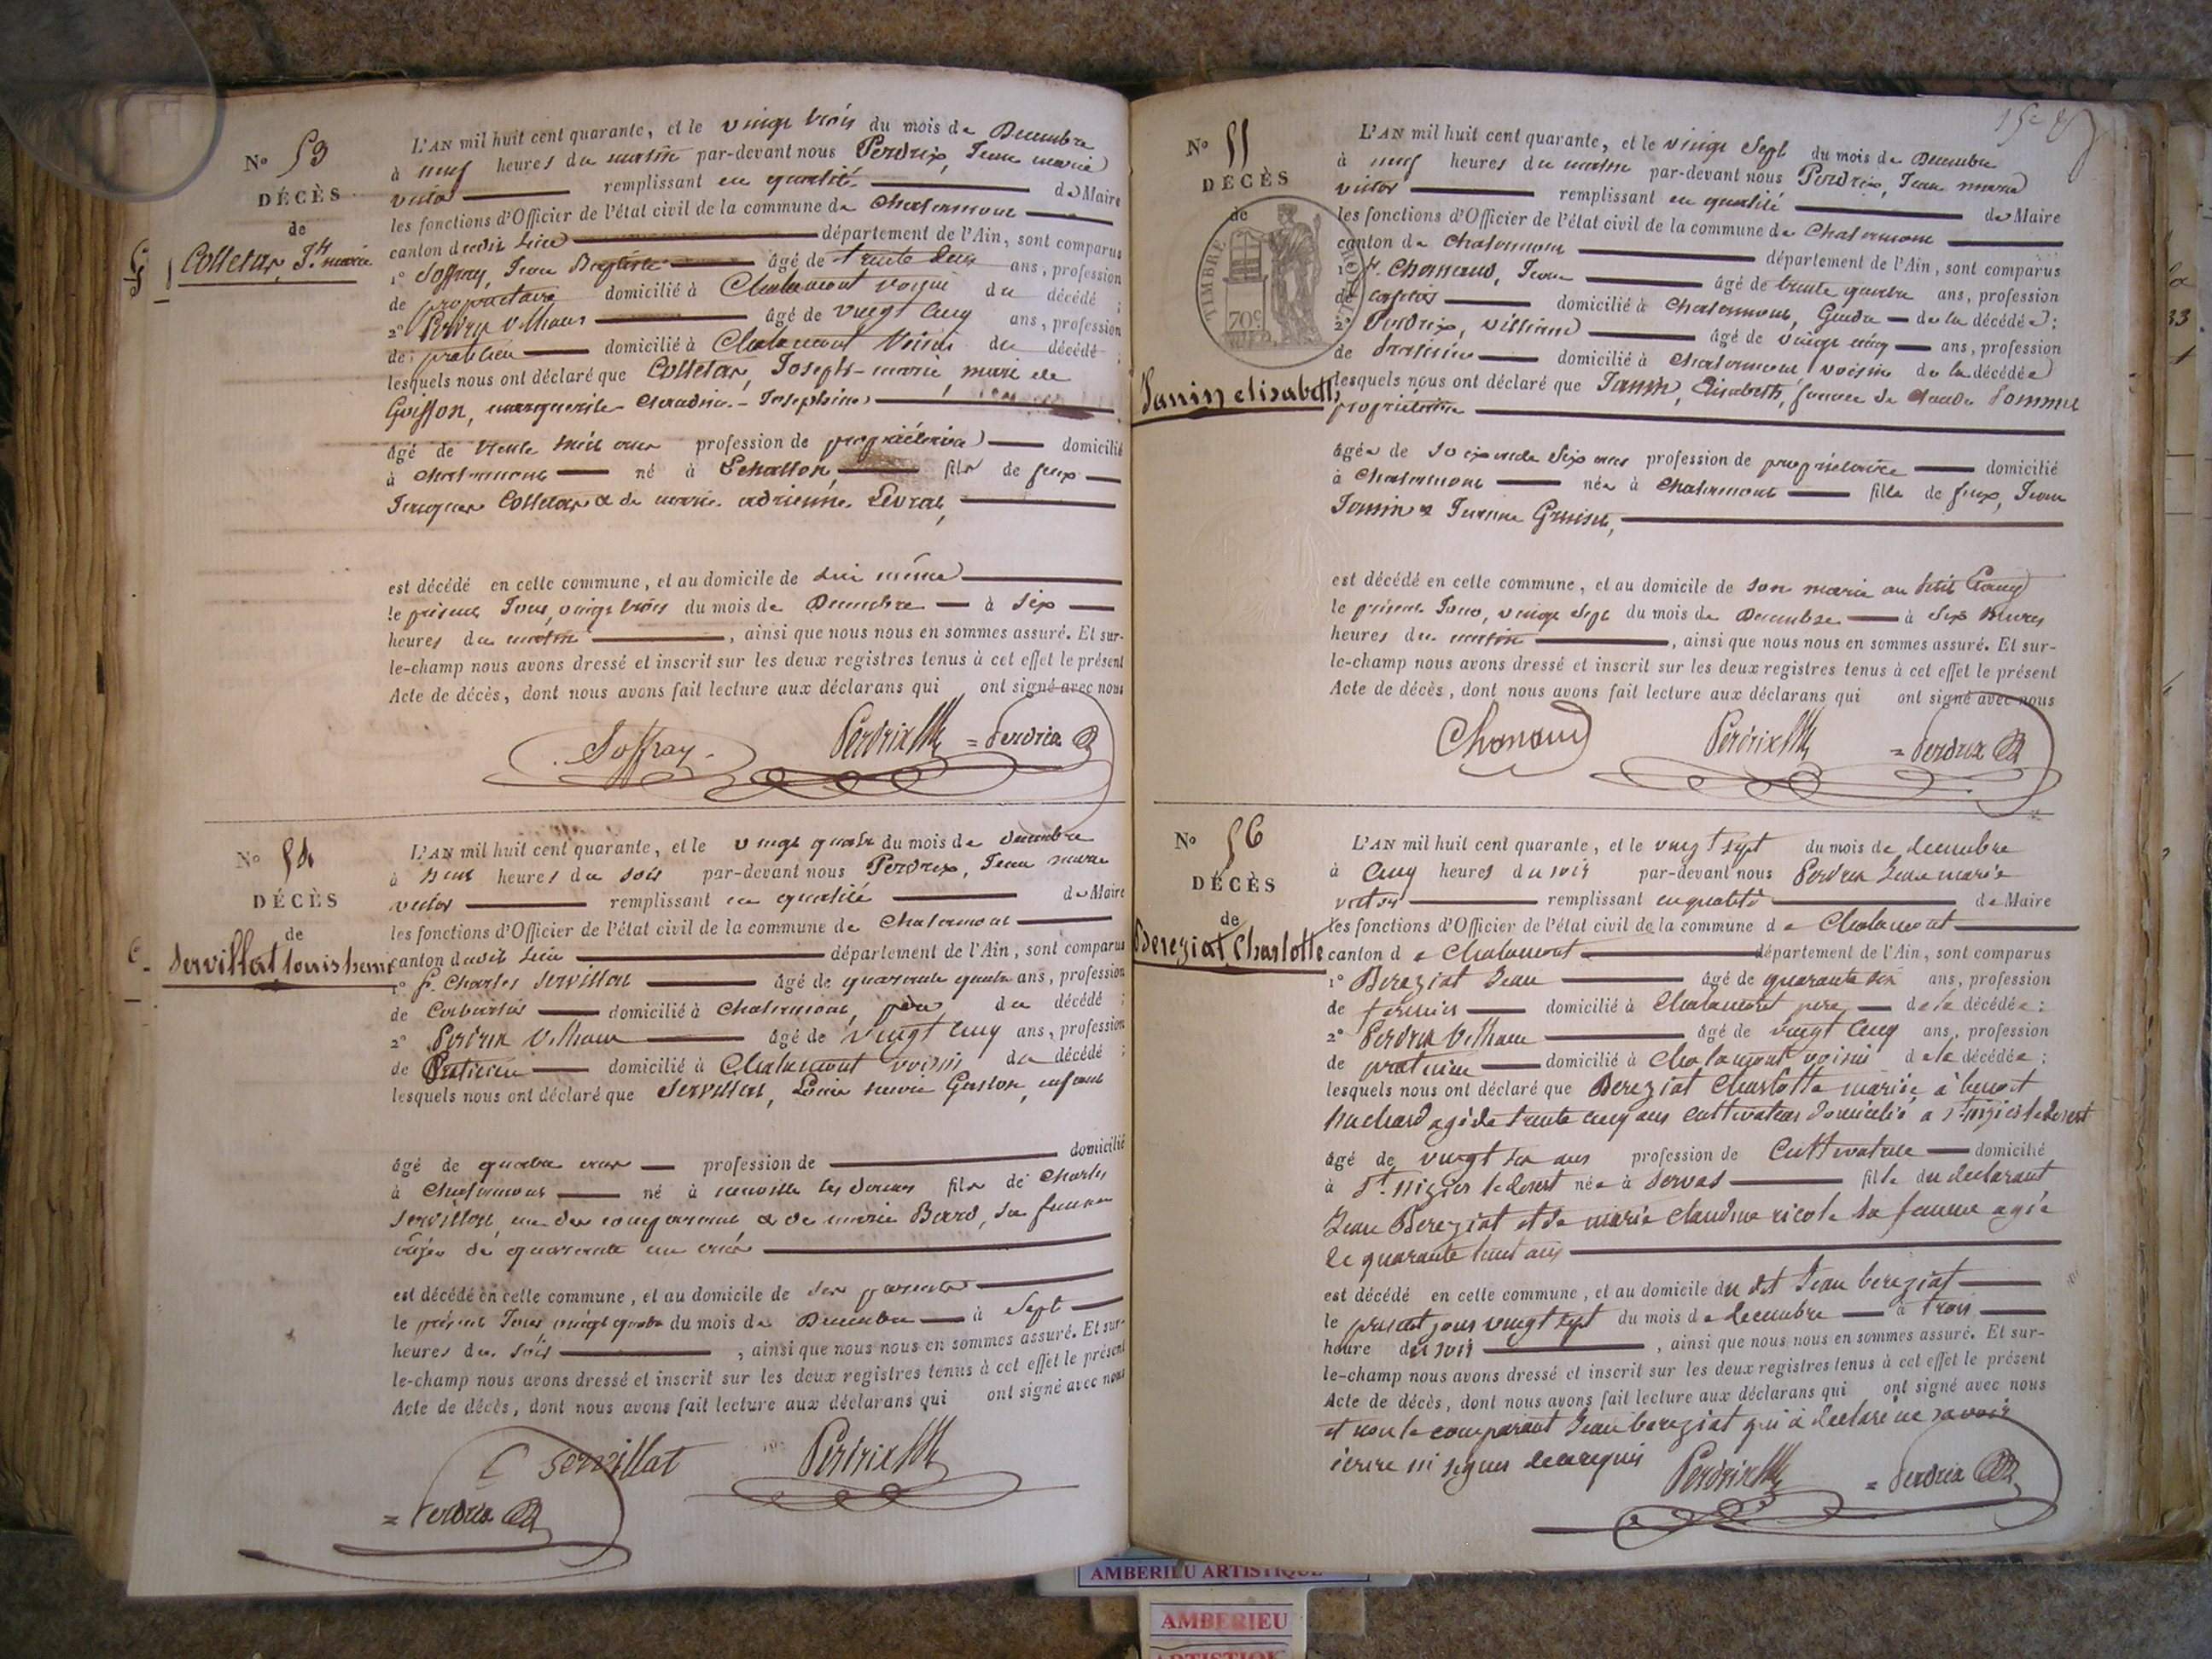 N° 53
DÉCÈS
de
Colletas, J.h marie
L'AN mil huit cent quarante, et le vingt trois du mois de Decembre
à neuf heures du matin par-devant nous Perdrix, Jean marie
victor remplissant en qualité de Maire
les fonctions d'Officier de l'état civil de la commune de Chalamont
canton dudit Lieu département de l'Ain, sont comparus
1° Soffray, Jean Baptiste âgé de trente deux ans, profession
de propriétaire domicilié à Chalamont voisin du décédé ;
2° Perdrix Villiams âgé de vingt cinq ans, profession
de praticien domicilié à Chalamont Voisin du décédé ;
lesquels nous ont déclaré que Colletas, Joseph-marie, mari de
Goiffon, marguerite Claudine-Josephine
âgé de trente huit ans profession de propriétaire domicilié
à Chalamont né à Echallon, fils de feux
Jacques Colletas & de marie adrienne Levrat,
est décédé en cette commune, et au domicile de lui même
le présent Jour, vingt trois du mois de Decembre à six
heures du matin , ainsi que nous nous en sommes assuré. Et sur-
le-champ nous avons dressé et inscrit sur les deux registres tenus à cet effet le présent
Acte de décès, dont nous avons fait lecture aux déclarans qui ont signé avec nous
Soffray Perdrix = Perdrix
N° 54
DÉCÈS
de
Servillat louis henri
L'AN mil huit cent quarante, et le vingt quatre du mois de decembre
à heures du soir par-devant nous Perdrix, Jean marie
victor remplissant en qualité de Maire
les fonctions d'Officier de l'état civil de la commune de Chalamont
canton dudit Lieu département de l'Ain, sont comparus
1° Charles Servillat âgé de quarante quatre ans, profession
de domicilié à Chalamont, père du décédé ;
2° Perdrix Villiam âgé de vingt cinq ans, profession
de Praticien domicilié à Chalamont voisin du décédé ;
lesquels nous ont déclaré que Servillat, Louis henri Gaston, enfant
âgé de quatre ans profession de domicilié
à Chalamont né à neuville les Dames fils de Charles
Servillat, un des comparans & de marie Bard, sa femme
âgée de quarante un ans
est décédé en cette commune, et au domicile de ses parents
le présent Jour vingt quatre du mois de Decembre à sept
heures du soir , ainsi que nous nous en sommes assuré. Et sur-
le-champ nous avons dressé et inscrit sur les deux registres tenus à cet effet le présent
Acte de décès, dont nous avons fait lecture aux déclarans qui ont signé avec nous
C Servillat Perdrix
= Perdrix
N° 55
DÉCÈS
de
TIMBRE ROYAL
70c
Janin elisabeth
L'AN mil huit cent quarante, et le vingt sept du mois de Decembre
à neuf heures du matin par-devant nous Perdrix, Jean marie
victor remplissant en qualité de Maire
les fonctions d'Officier de l'état civil de la commune de Chalamont
canton de Chalamont département de l'Ain, sont comparus
1° Chanaud, Jean âgé de trente quatre ans, profession
de domicilié à Chalamont, Gendre de la décédée ;
2° Perdrix, villiam âgé de vingt cinq ans, profession
de Praticien domicilié à Chalamont voisin de la décédée
lesquels nous ont déclaré que Janin, Elisabeth, femme de Claude Pommet
propriétaire
âgée de soixante six ans profession de propriétaire domicilié
à Chalamont née à Chalamont fille de feux, Jean
Janin & Jeanne
est décédé en cette commune, et au domicile de son mari au petit
le présent Jour, vingt sept du mois de Decembre à six heures
heures du matin , ainsi que nous nous en sommes assuré. Et sur-
le-champ nous avons dressé et inscrit sur les deux registres tenus à cet effet le présent
Acte de décès, dont nous avons fait lecture aux déclarans qui ont signé avec nous
Chanaud Perdrix = Perdrix
N° 56
DÉCÈS
de
Bereziat Charlotte
L'AN mil huit cent quarante, et le vingt sept du mois de decembre
à cinq heures du soir par-devant nous Perdrix Jean marie
victor remplissant en qualité de Maire
les fonctions d'Officier de l'état civil de la commune de Chalamont
canton de Chalamont département de l'Ain, sont comparus
1° Bereziat Jean âgé de quarante six ans, profession
de fermier domicilié à Chalamont pere de la décédée ;
2° Perdrix Villiam âgé de vingt cinq ans, profession
de praticien domicilié à Chalamont voisin de la décédée ;
lesquels nous ont déclaré que Bereziat Charlotte mariée à benoit
agé de trente cinq ans cultivateur domicilié a St nizier le desert
âgé de vingt six ans profession de Cultivatrice domicilié
à St. Nizier le desert née à Servas fille du declarant
Jean Bereziat et de marie claudine sa femme agée
de quarante huit ans
est décédé en cette commune, et au domicile du dit Jean bereziat
le present jour vingt sept du mois de decembre à trois
heure du soir , ainsi que nous nous en sommes assuré. Et sur-
le-champ nous avons dressé et inscrit sur les deux registres tenus à cet effet le présent
Acte de décès, dont nous avons fait lecture aux déclarans qui ont signé avec nous
et non le comparant Jean bereziat qui a declaré ne savoir
écrire ni signer de ce requis Perdrix = Perdrix
AMBERIEU ARTISTIQUE
AMBERIEU
ARTISTIQUE